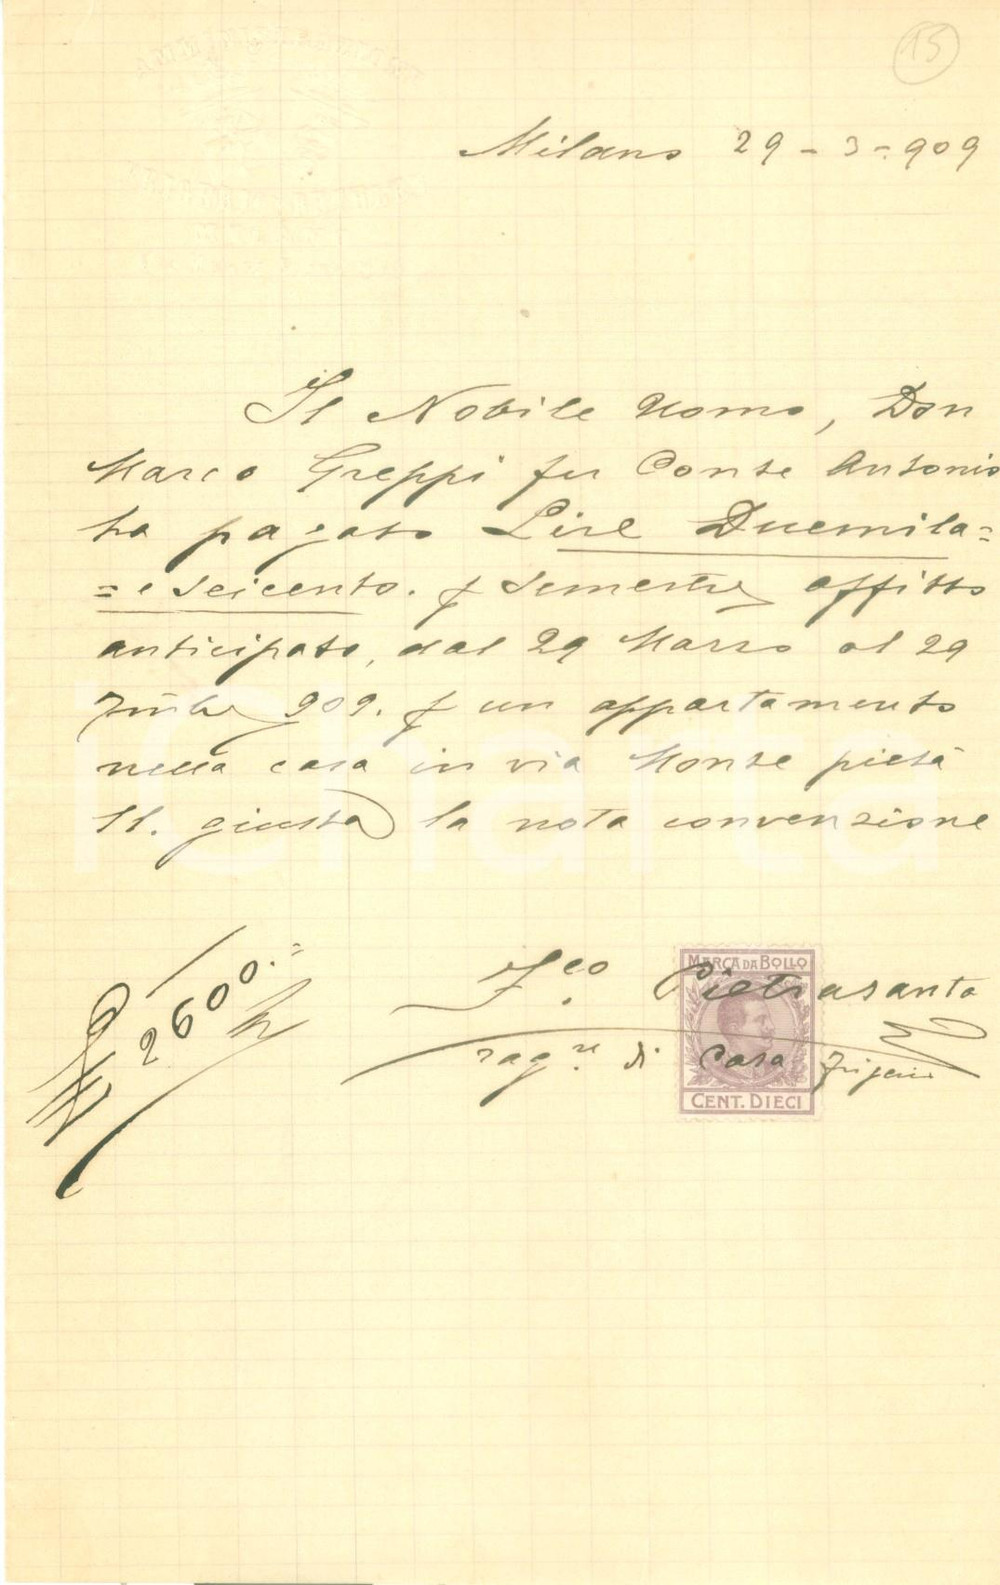 15
Milano 29 - 3 - 909
Il Nobile Uomo, Don
Marco Greppi fu Conte Antonio
ha pagato Lire Duemila=
= e seicento. p semestre affitto
anticipato, dal 29 Marzo al 29
7mbre 909. p un appartamento
nella casa in via Monte pietà
11. giusta la nota convenzione
£ 2600.=
F.co Pietrasanta
rag.re di Casa
MARCA DA BOLLO
CENT. DIECI
charta